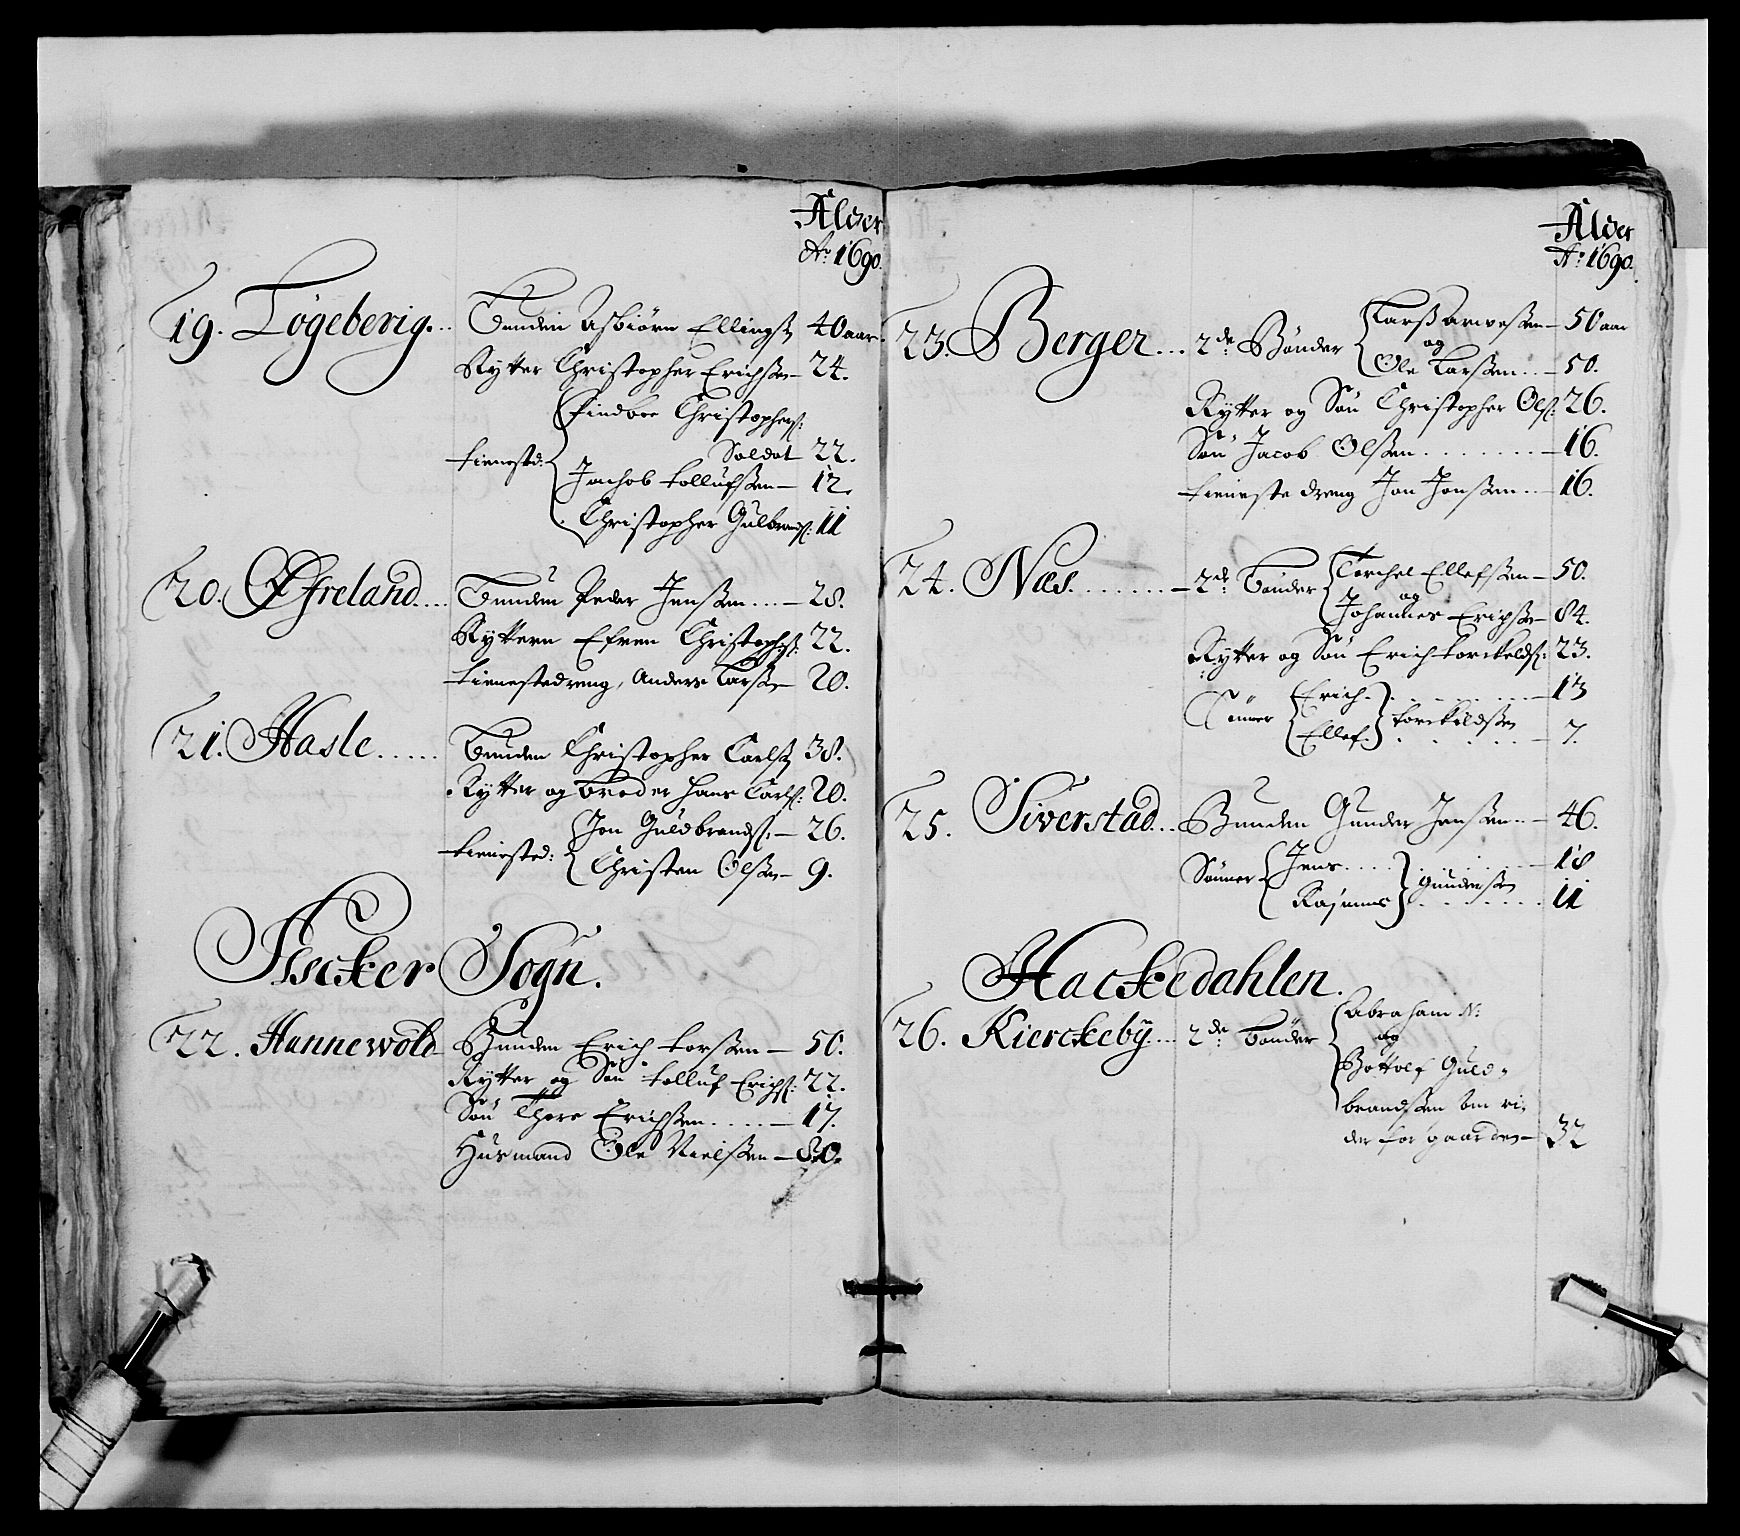 Alder
Ao 1690.
19. Løgeberig... Bunden Asbiørn Ellings: 40 aar.
Rytter Christopher Erichsen — 24.
Findboe Christophers:
Soldat 22.
tieneste d: Jachob tollufsen — 12.
Christopher Gulbrands: 11
20. Øfreland.... Bunden Peder Jenssen ... — 28.
Rytteren Efven Christophs: 22.
tienestedreng, Anders Larsen — 20.
21. Hasle ..... Bunden Christopher Carls: 38.
Rytter og broder Hans Carls: 20.
tienested: Jon Guldbrands: — 26.
Christen Olsen — 9.
Ascker Sogn.
22. Hannewold Bunden Erich torssen — 50.
Rytter og Søn tolluf Erichs: 22.
Søn Thore Erichssen .... — 17.
Husmand Ole Nielssen — 80.
Alder
Ao 1690.
23. Berger ... 2de Bønder Larss arvessen — 50 aar
og
Ole Larssen ... — 50.
Rytter og Søn Christopher Ols: 26.
Søn Jacob Olssen ....... — 16.
tieneste dreng Jon Jonssen ... — 16.
24. Næs. ....... — 2de Bønder Torchel Ellefssen — 50.
og
Johannes Erichsen — 84.
Rytter og Søn Erich torckelds: 23.
Sønner Erich. ....... — 13
Ellef. torckildssen ....... — 7.
25. Siverstad ... Bunden Gunder Jenssen ... — 46.
Sønner Jens .... ....... — 18
Rasmus gundersen ....... 11
Hackedahlen.
26. Kierckeby .... 2de bønder Abraham N:
og
Bottolf Guld-
brandssen som ri-
der for gaarden — 32